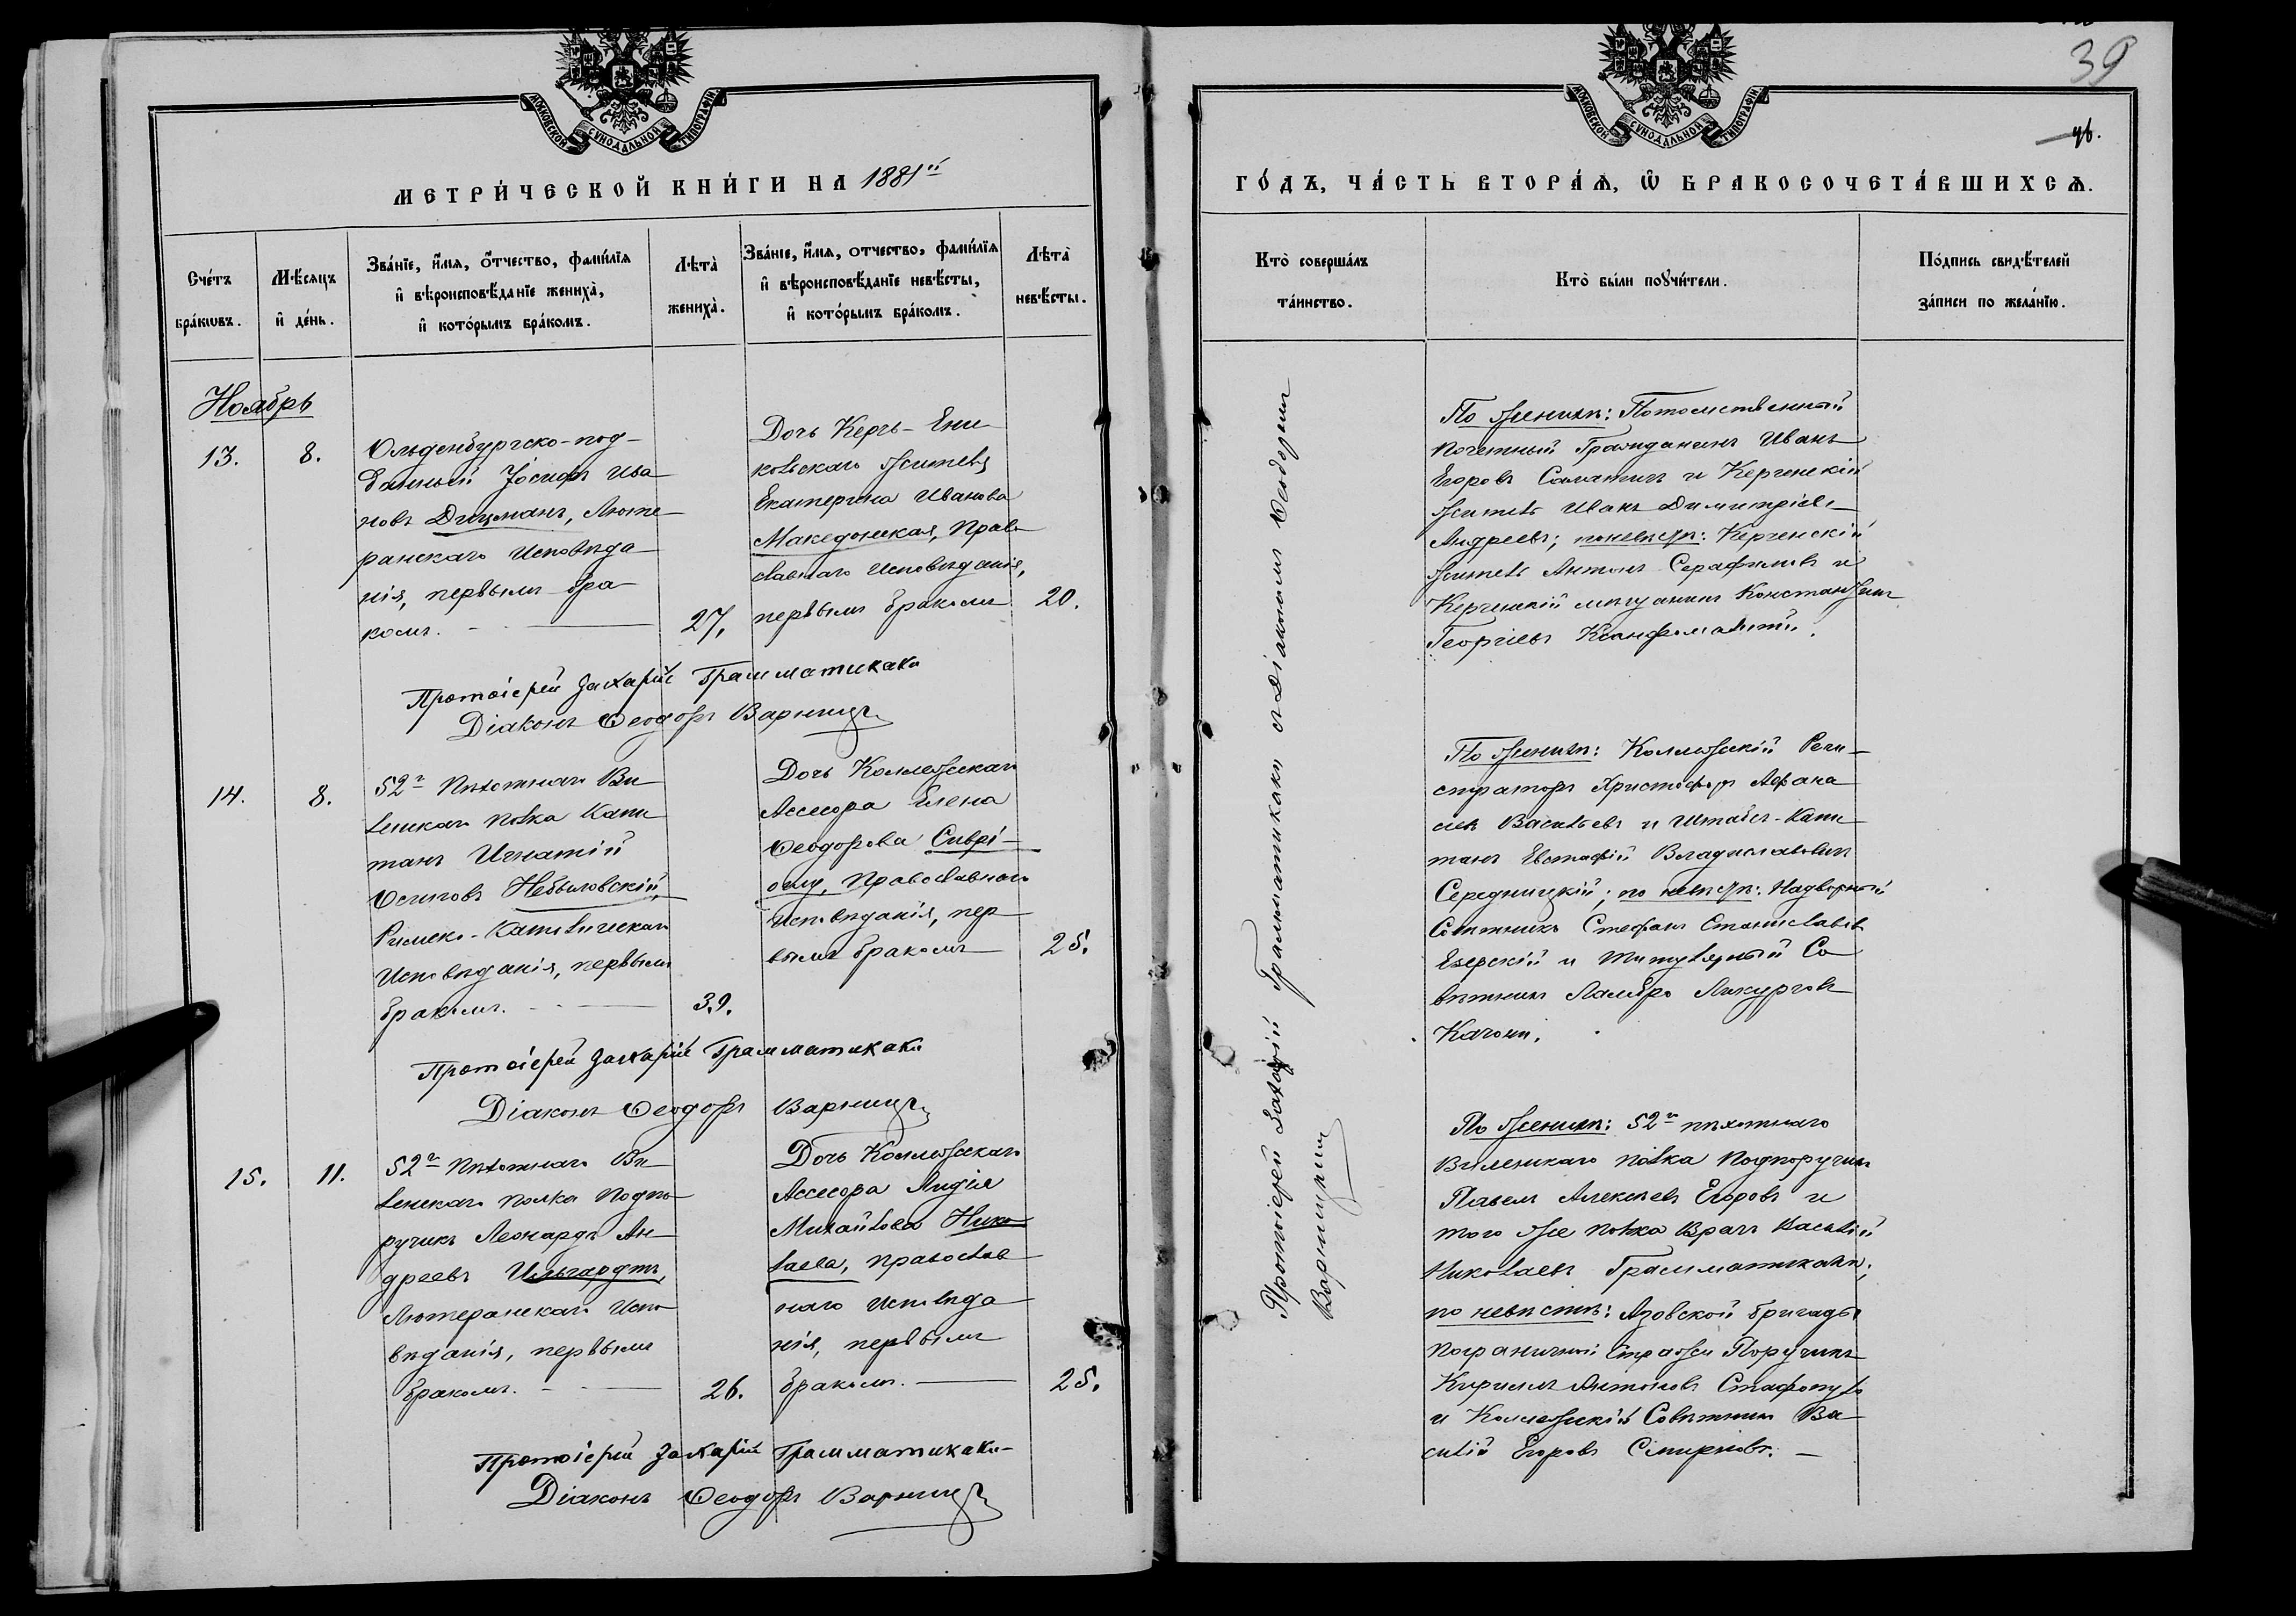 МОСКОВСКОЙ СѴНОДАЛЬНОЙ ТИПОГРАФІИ
МЕТРИ́ЧЕСКОЙ КНИ́ГИ НА 1881й
Сче́тъ бра́кѡвъ.
Мѣ́сяцъ и де́нь.
Зва́нїе, и́мя, о́тчество, фами́лїя и вѣроисповѣ́данїе жениха̀, и кото́рымъ бра́комъ.
Лѣта̀ жениха̀.
Зва́нїе, и́мя, отчество, фами́лїя и вѣроисповѣ́данїе невѣ́сты, и кото́рымъ бра́комъ.
Лѣта̀ невѣ́сты.
Ноябрь
13.
8.
Ольденбургско-под-
данный Іосифъ Ива
новъ Дицманъ, Люте-
ранскаго Исповѣда
нія, первымъ бра
комъ.
27.
Дочь Керчь-Ени
кольскаго жителя
Екатерина Иванова
Македонская, Право
славнаго Исповѣданія,
первымъ бракомъ
20.
Протоіерей Захарія Грамматикаки
Діаконъ Ѳеодоръ Варницкій
14.
8.
52го Пѣхотнаго Ви
ленскаго полка Капи
танъ Игнатій
Осиповъ Небыловскій,
Римско-Католическаго
Исповѣданія, первымъ
бракомъ.
39.
Дочь Коллежскаго
Ассесора Елена
Ѳеодорова
Православнаго
Исповѣданія, пер
вымъ бракомъ
25.
Протоіерей Захарія Грамматикаки
Діаконъ Ѳеодоръ Варницкій
15.
11.
52го Пѣхотнаго Ви
ленскаго полка Подпо
ручикъ Леонардъ Ан
дреевъ
Лютеранскаго Испо
вѣданія, первымъ
бракомъ.
26.
Дочь Коллежскаго
Ассесора Лидія
Михайлова Нико
лаева, православ
наго Исповѣда
нія, первымъ
бракомъ.
25.
Протоіерей Захарій Грамматикаки
Діаконъ Ѳеодоръ Варницкій
39
МОСКОВСКОЙ СѴНОДАЛЬНОЙ ТИПОГРАФІИ
ГО́ДЪ, ЧА́СТЬ ВТОРА́Я, Ѡ БРАКОСОЧЕТА́ВШИХСЯ.
Кто̀ соверша́лъ та́инство.
Кто̀ бы́ли поꙋчи́тели.
По́дпись свидѣ́телей за́писи по жела́нїю.
Протоіерей Захарій Грамматикаки съ Діакономъ Ѳеодоромъ
Варницкимъ
По женихѣ: Потомственный
почетный Гражданинъ Иванъ
Егоровъ и Керченскій
житель Иванъ Димитріевъ
Андреевъ; по невѣстѣ: Керченскій
житель Антонъ Серафимовъ и
Керченскій мѣщанинъ Константинъ
Георгіевъ
По женихѣ: Коллежскій Реги-
страторъ Христофоръ Афана
сіевъ Васильевъ и Штабсъ-Капи
танъ Евстафій Владиславовичъ
Середницкій; по невѣстѣ: Надворный
Совѣтникъ Стефанъ Станиславовъ
Езерскій и Титулярный Со
вѣтникъ Ламбро Ликурговъ
Качони.
По женихѣ: 52го пѣхотнаго
Виленскаго полка Подпоручикъ
Павелъ Алексѣевъ Егоровъ и
того же полка Врачъ Василій
Николаевъ Грамматикаки;
по невѣстѣ: Азовской бригады
пограничной Стражи Поручикъ
Кириллъ Антоновъ Стафопуло
и Коллежскій Совѣтникъ Ва
силій Егоровъ Смирновъ.